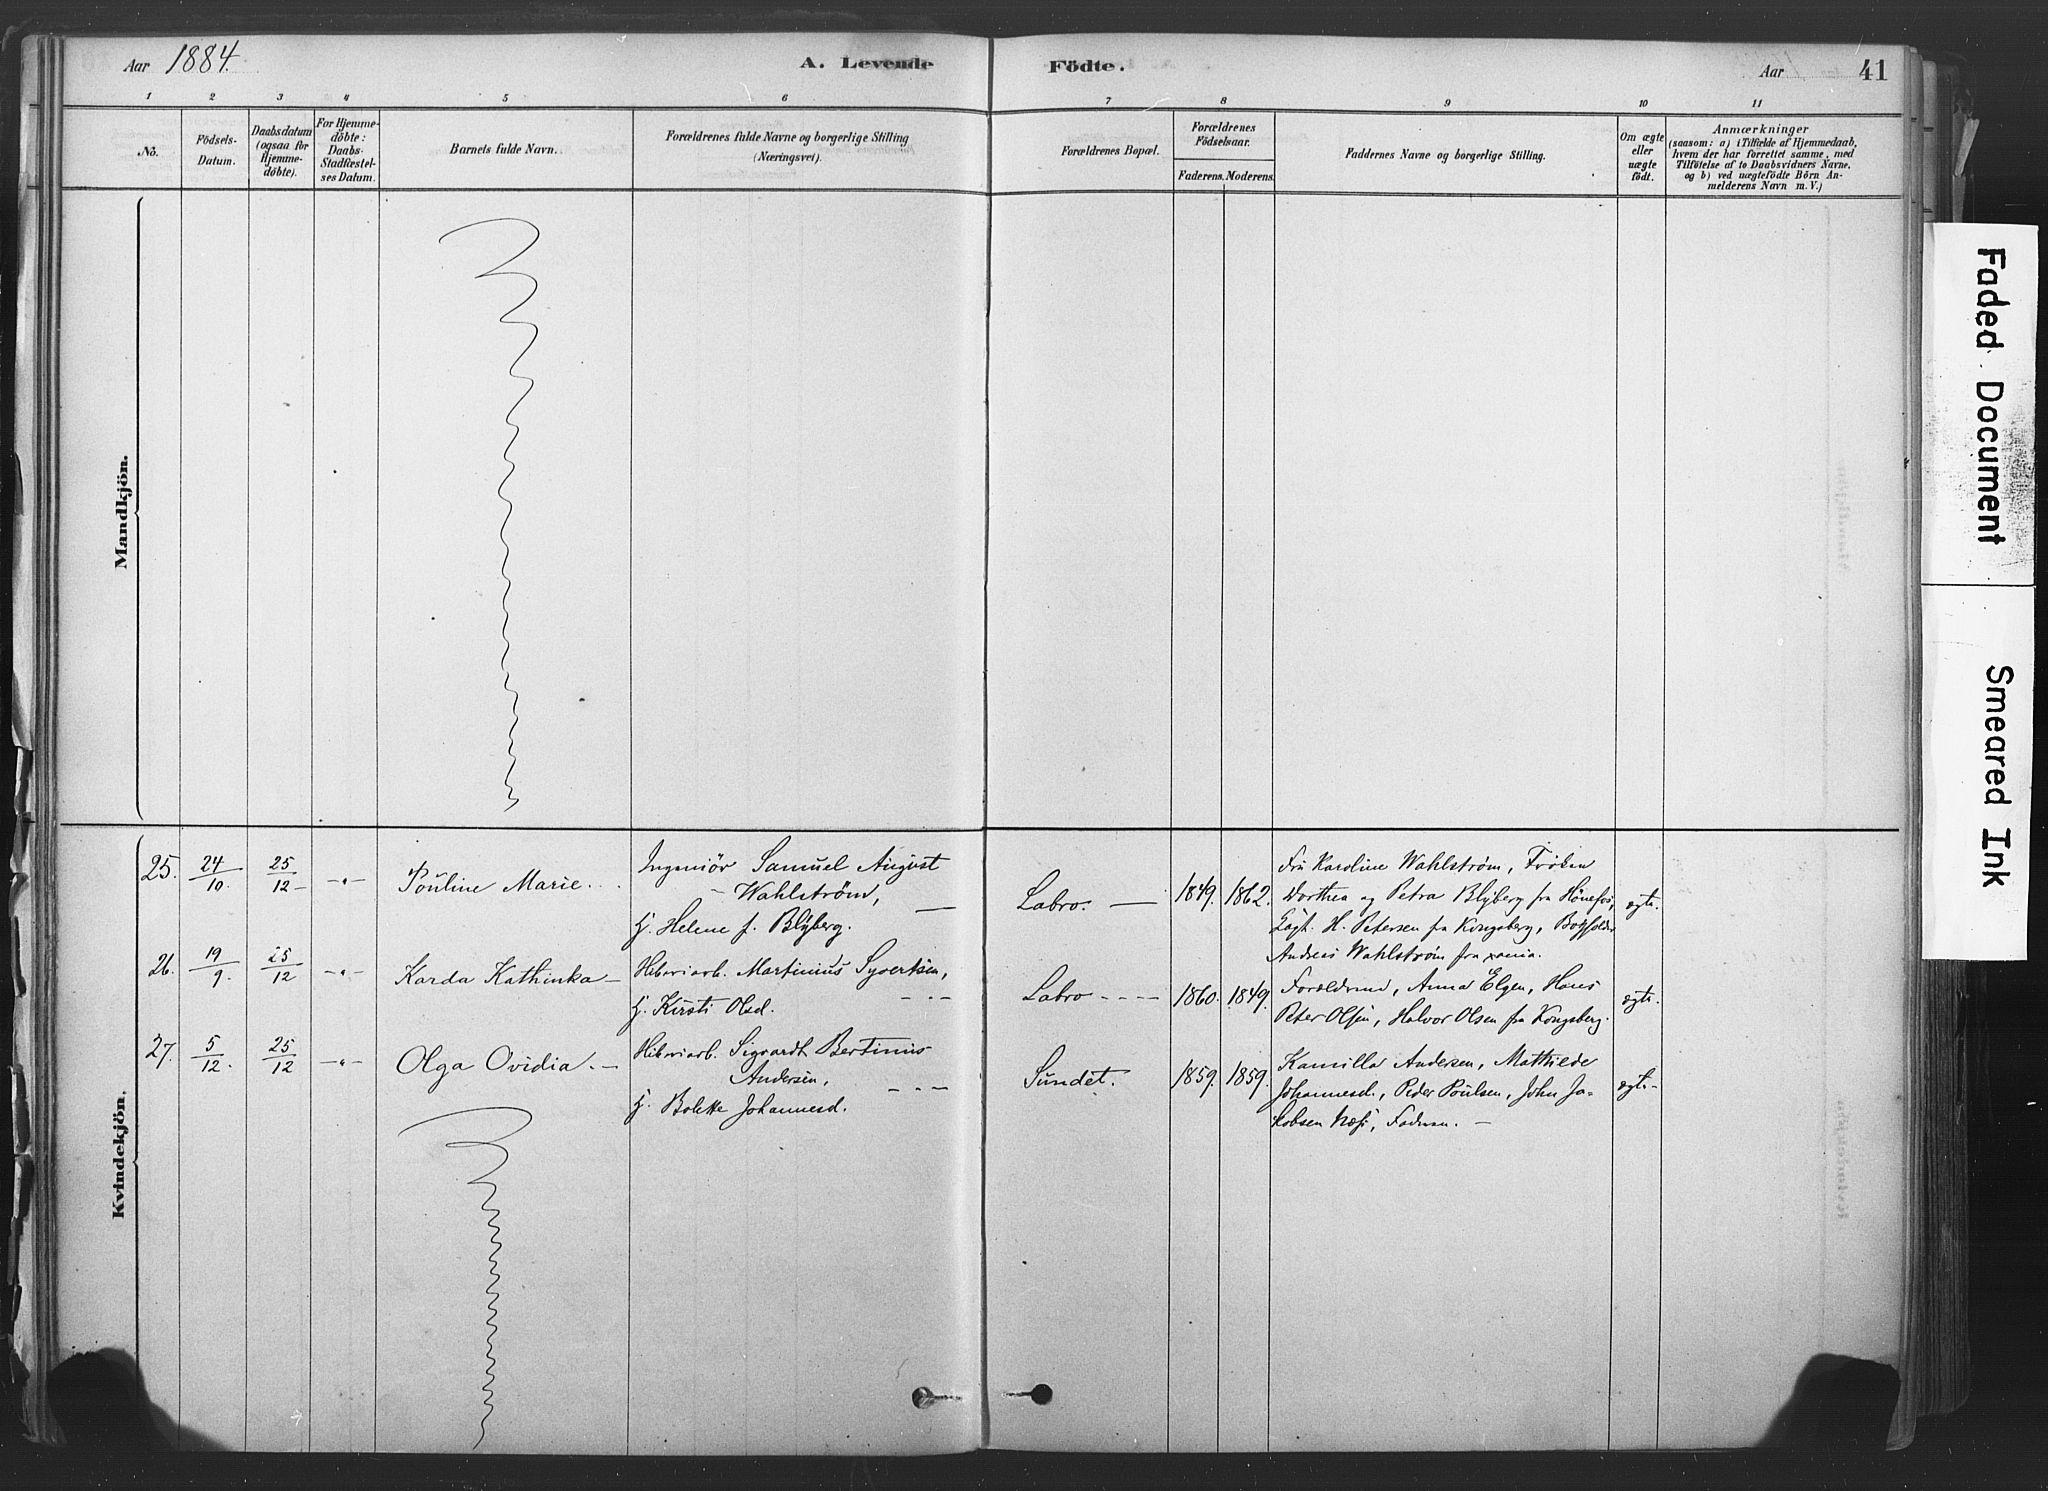 Aar 1884.
A. Levende Födte.
Aar 41
1 2 3 4 5 6 7 8 9 10 11
No.
Födsels-
Datum.
Daabsdatum
(ogsaa for
Hjemme-
döbte).
For Hjemme-
döbte:
Daabs-
Stadfæstel-
ses Datum.
Barnets fulde Navn.
Forældrenes fulde Navne og borgerlige Stilling
(Næringsvei).
Forældrenes Bopæl.
Forældrenes
Födselsaar.
Faderens. Moderens.
Faddernes Navne og borgerlige Stilling.
Om ægte
eller
uægte
födt.
Anmærkninger
(saasom: a) i Tilfælde af Hjemmedaab,
hvem der har forrettet samme, med
Tilföielse af to Daabsvidners Navne,
og b) ved uægtefödte Börn An-
melderens Navn m. V.)
Mandkjön.
Kvindekjön.
25. 24/10. 25/12 - -"- Pouline Marie.
Ingeniör Samuel August
- Wahlström,
H. Helene f. Blyberg.
Labro. 1849. 1862.
Fru Karoline Wahlström, Fröken
Dorthea og Petra Blyberg fra Hönefos,
H. Petersen fra Kongsberg,
Andreas Wahlström fra xania.
ægte.
26. 19/9. 25/12 -"- Karda Kathinka -
arb. Martinius Syvertsen,
H. Kirsti Olsd.
Labro - - - - 1860. 1849.
Forældrene, Anna Elgen, Hans
Peter Olsen, Halvor Olsen fra Kongsberg.
ægte.
27. 5/12. 25/12 -"- Olga Ovidia. -
arb. Sigvardt Bertinius
Andersen,
H. Bolette Johannesd.
Sundet. 1859. 1859.
Kamilla Andersen, Mathilde
Johannesd., Peder Poulsen, John Ja-
kobsen Næss, Faderen. -
ægte-
Faded Document
Smeared Ink